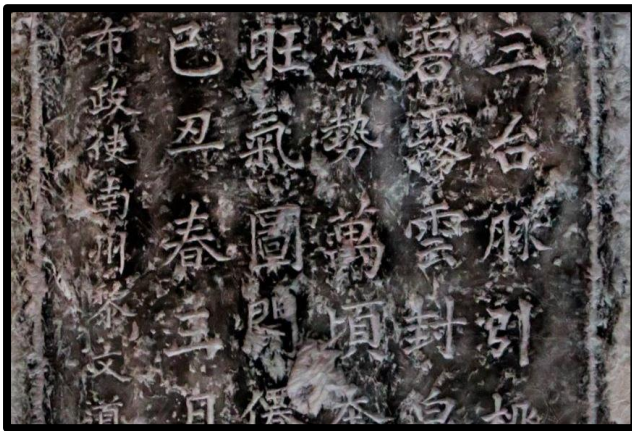 三台脉引
碧雲封
江勢萬頃
旺氣圖開
巳丑春王月
布政使南州黎文道